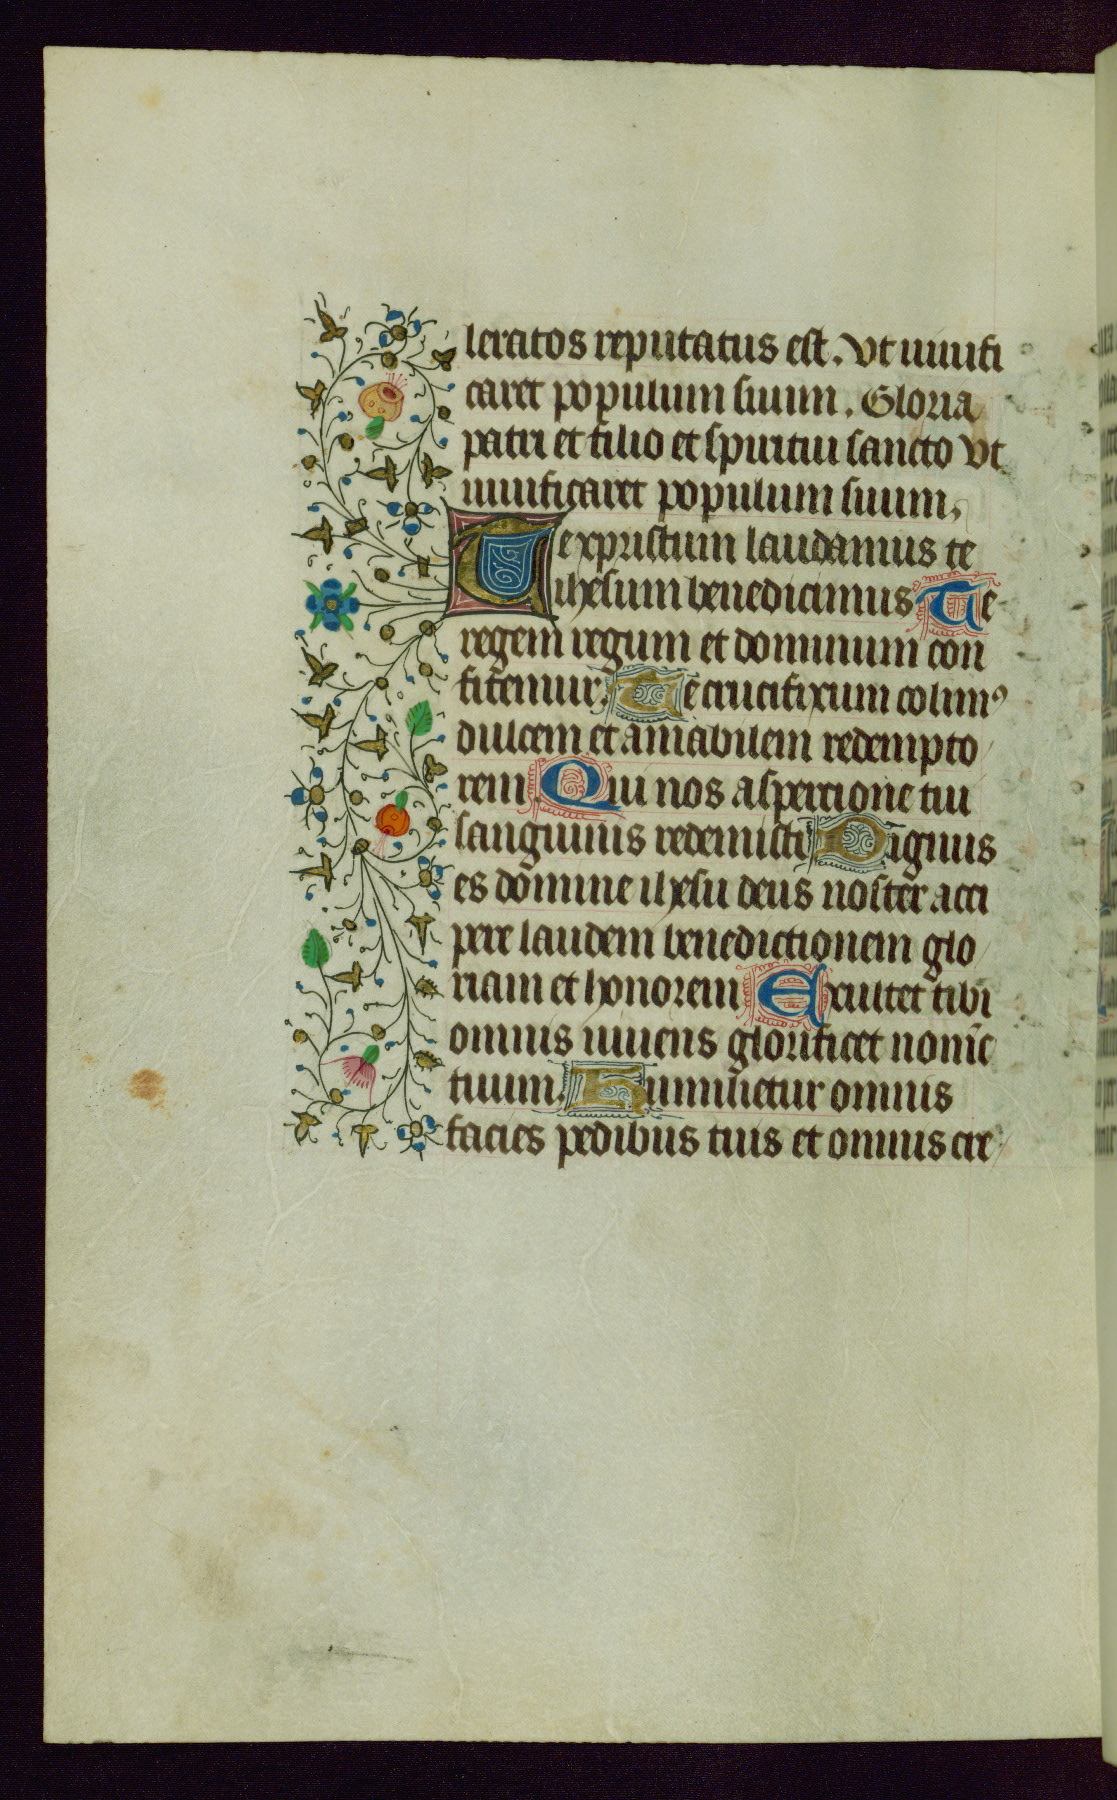 leratos reputatus est. Vt uiuifi
caret populum suum. Gloria
patri et filio et spiritui sancto Vt
uiuificaret populum suum.
Te xpristum laudamus te
ihesum benedicimus Te
regem regum et dominum con
fitemur. Te crucifixum colimꝰ
dulcem et amabilem redempto
rem Qui nos aspercione tui
sanguinis redemisti Dignus
es domine ihesu deus noster acci
pere laudem benedictionem glo
riam et honorem Exultet tibi
omnis uiuens glorificet nomē
tuum. Humilietur omnis
facies pedibus tuis et omnis cre